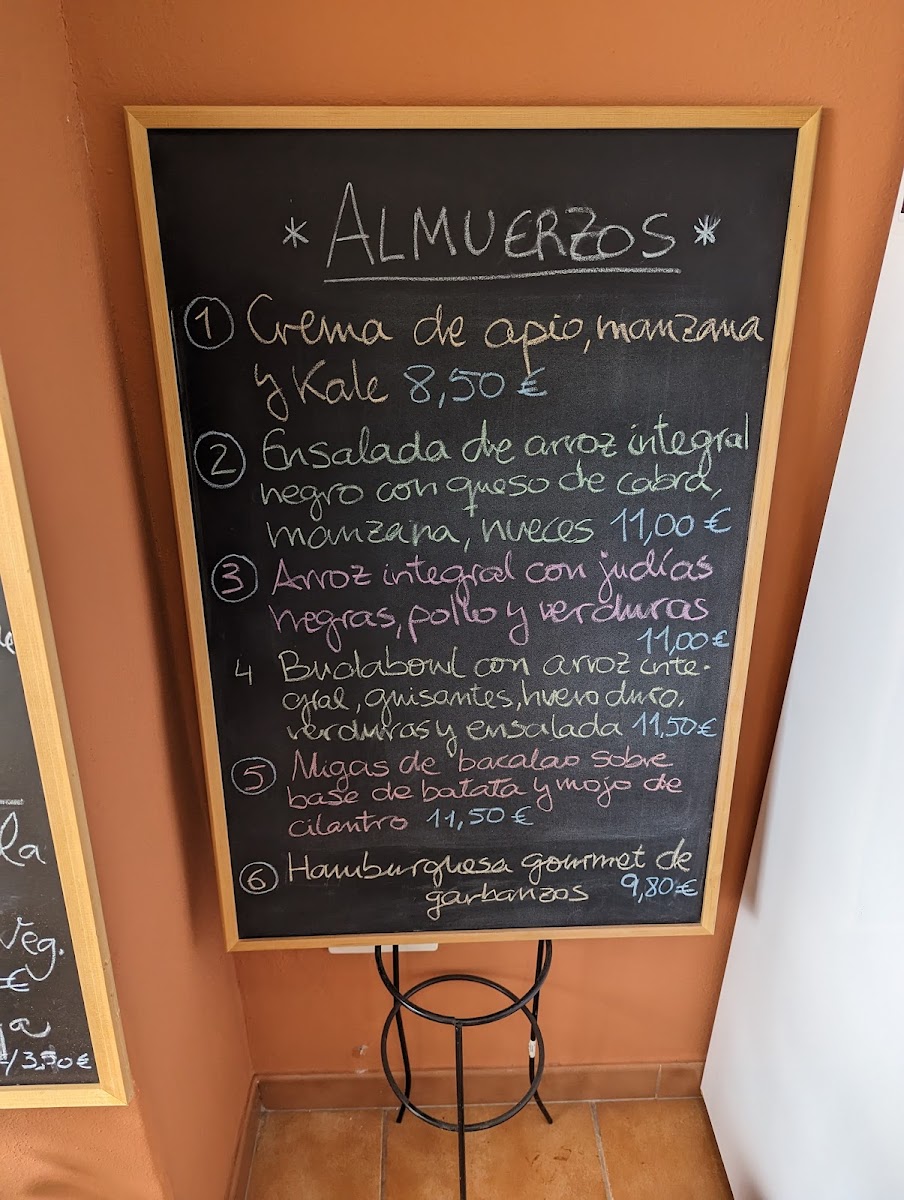 * ALMUERZOS *
1 Crema de apio, manzana
y Kale 8,50 €
2 Ensalada de arroz integral
negro con queso de cabra,
manzana, nueces 11,00 €
3 Arroz integral con judías
negras, pollo y verduras
11,00 €
4 Budabowl con arroz inte-
gral, guisantes, huevo duro,
verduras y ensalada 11,50 €
5 Migas de bacalao sobre
base de batata y mojo de
cilantro 11,50 €
6 Hamburguesa gourmet de
garbanzos 9,80 €
la
veg.
€
ja
/3,50 €